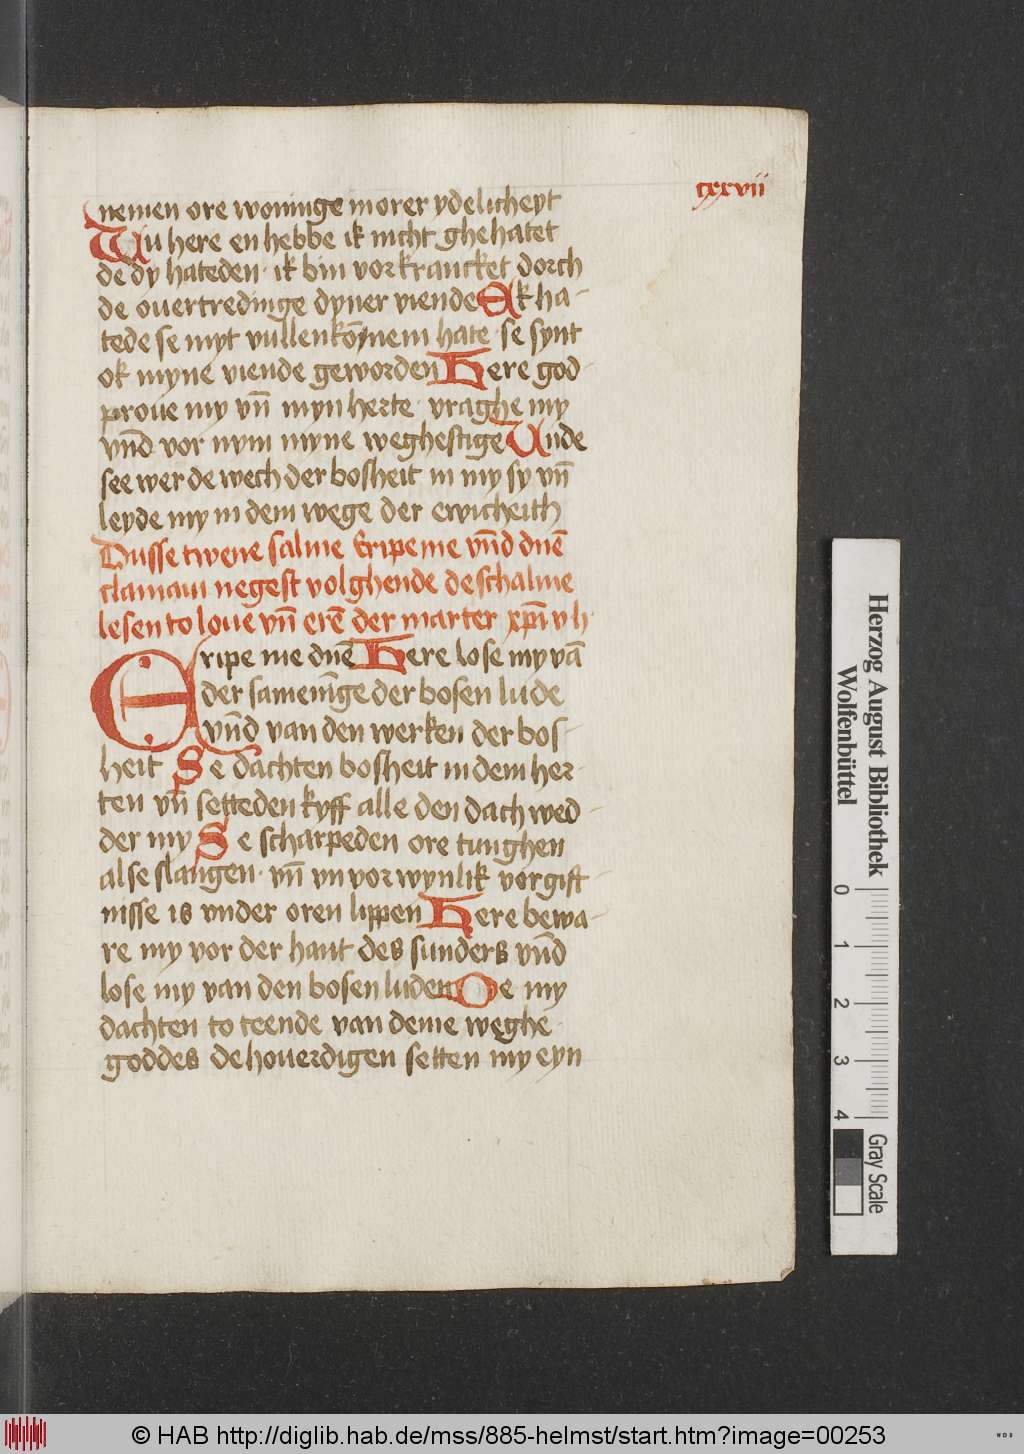 cxxvii
nemen ore woninge in orer ydelicheyt
Wu here en hebbe ik nicht ghehatet
de dy hateden· ik bin vorkrancket dorch
de ouertredinge dyner viende Ak ha-
tede se myt vullenkōmem hate· se synt
ok myne viende geworden Here god
proue my vn̄ myn herte· vraghe my
vn̄d vor nym myne weghestige Vnde
see wer de wech der bosheit in my sy vn̄
leyde my in dem wege der ewicheith
Dusse twene salme Eripe me vn̄d dn̄e
clamaui negest volghende de schalme
lesen to loue vn̄ erē der marter xp̄i vh·
Eripe me dn̄e Here lose my vā
der samenīge der bosen lude
vn̄d van den werken der bos-
heit Se dachten bosheit in dem her-
ten vn̄ setteden kyff alle den dach wed-
der my Se scharpeden ore tunghen
alse slangen· vn̄ vnvorwynlik vorgift-
nisse is vnder oren lippen Here bewa-
re my vor der hant des sunders vn̄d
lose my van den bosen luden Se my
dachten to teende van deme weghe·
goddes de houerdigen setten my eyn
Herzog August Bibliothek
Wolfenbüttel
0 1 2 3 4
Gray Scale
© HAB http://diglib.hab.de/mss/885-helmst/start.htm?image=00253